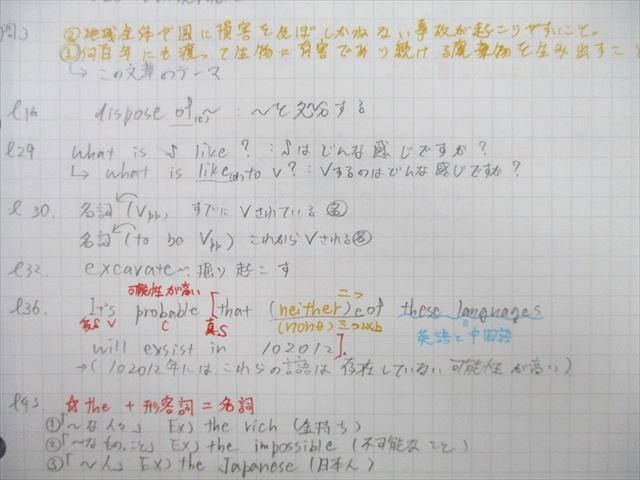 問3 ②地域全体や国に損害を及ぼしかねない事故が起こりやすいこと。
③何百年にも渡って生物に有害であり続ける廃棄物を生み出すこ
↳この文章のテーマ
l16 dispose of ~ : ~を処分する
l29 what is ♪ like? : ♪はどんな感じですか?
↳ what is like to V? : Vするのはどんな感じですか?
l30. 名詞 (Vpp) すでにVされている 名
名詞 (to be Vpp) これからVされる 名
l32. excavate~ 掘り起こす
可能性が高い 二つ
l36 It's probable [that (neither) of these languages
仮S V C 真S (none) 三つ以上 英語と中国語
will exsist in 102012].
→(102012年にはこれらの言語は存在していない可能性が高い)
l43. ☆the + 形容詞 = 名詞
①「~な人々」 Ex) the rich (金持ち)
②「~なもの、こと」 Ex) the impossible (不可能なこと)
③「~人」 Ex) the Japanese (日本人)